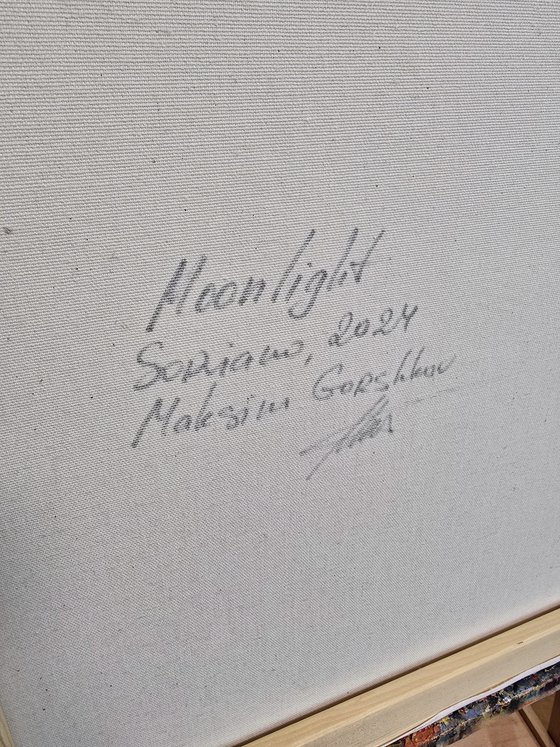 Moonlight
Soriano, 2024
Maksim Gorshkov